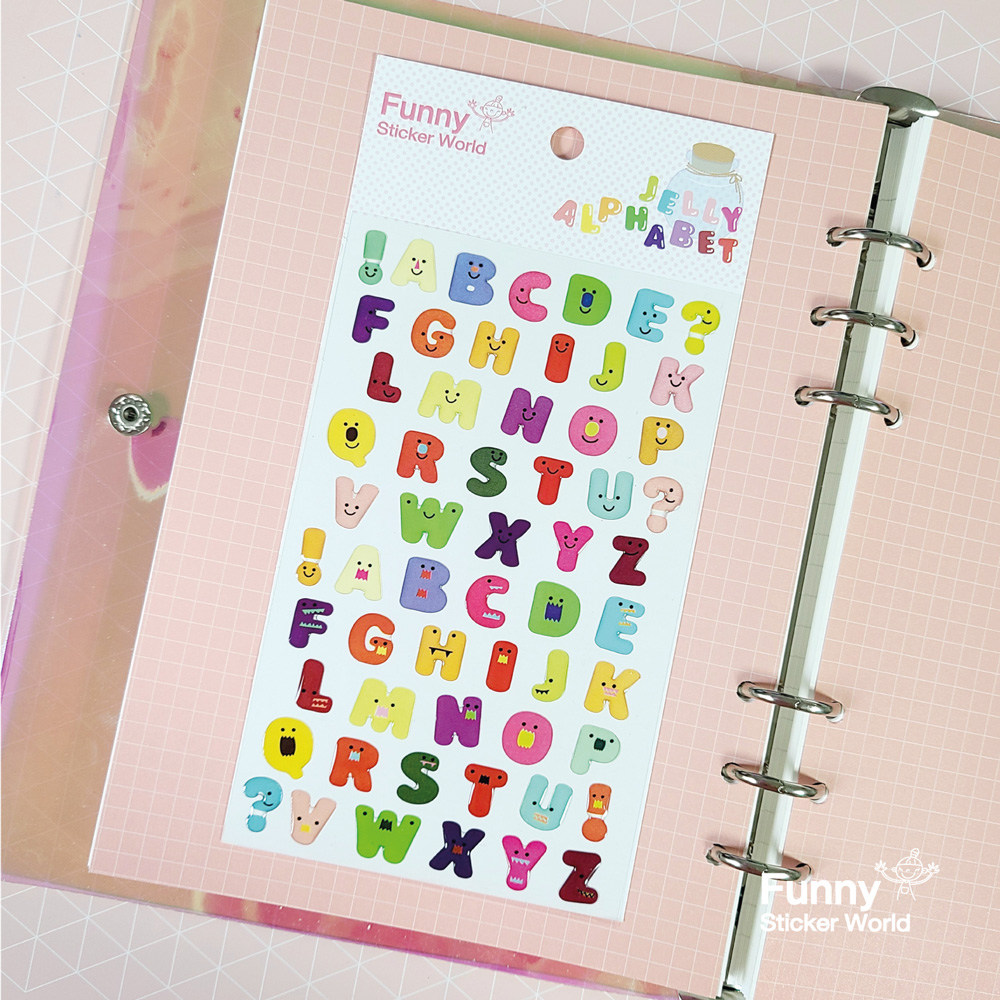 Funny
Sticker World
JELLY
ALPHABET
! A B C D E ?
F G H I J K
L M N O P
Q R S T U ?
V W X Y Z
! A B C D E
F G H I J K
L M N O P
Q R S T U !
? V W X Y Z
Funny
Sticker World